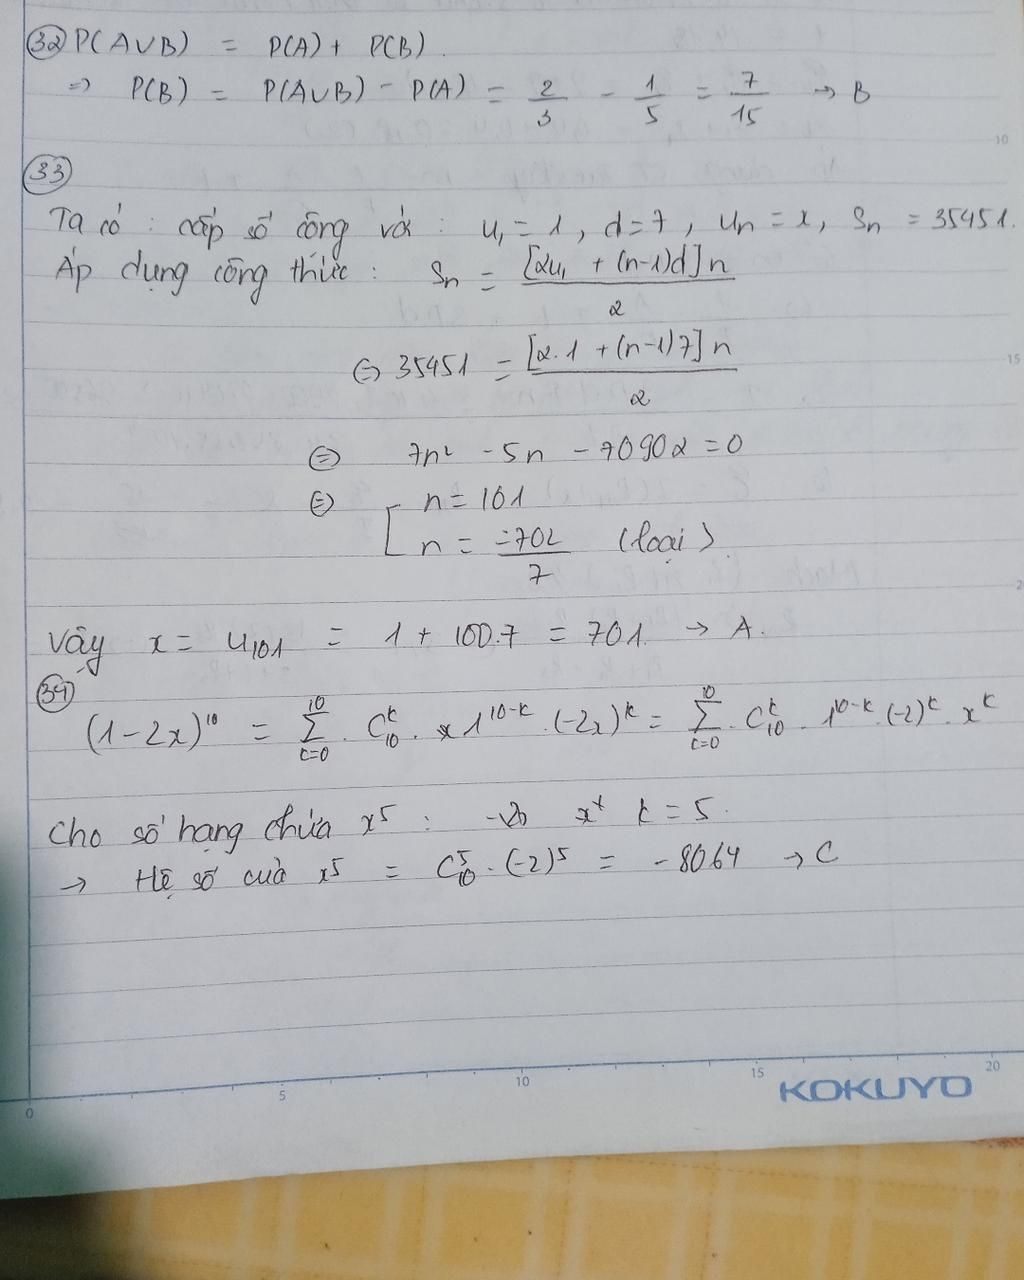 32 P(A∪B) = P(A) + P(B).
⇒ P(B) = P(A∪B) - P(A) = 2/3 - 1/5 = 7/15 → B
10
33
Ta có : cấp số cộng với : u₁ = 1 , d = 7 , un = x, Sn = 35451.
Áp dụng công thức : Sn = [2u₁ + (n-1)d]n / 2
15
⇔ 35451 = [2.1 + (n-1)7]n / 2
⇔ 7n² - 5n - 70902 = 0
⇔ [ n = 101
n = -702/7 (loại)
Vậy x = u₁₀₁ = 1 + 100.7 = 701. → A.
34
(1-2x)¹⁰ = Σ¹⁰ₖ₌₀ . Cᵏ₁₀ . 1¹⁰⁻ᵏ . (-2x)ᵏ = Σ¹⁰ₖ₌₀ . Cᵏ₁₀ . 1¹⁰⁻ᵏ . (-2)ᵏ . xᵏ
Cho số hạng chứa x⁵ : k = 5.
→ Hệ số của x⁵ = C⁵₁₀ . (-2)⁵ = -8064 → C
0 5 10 15 20
KOKUYO